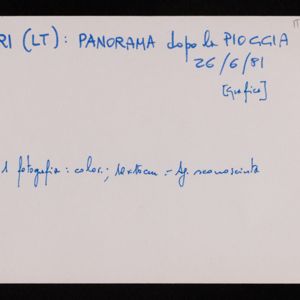 RI (LT): PANORAMA dopo la PIOGGIA
26/6/81
[Grafica]
1 fotografia: color.; 18x18cm .- Ag. sconosciuta